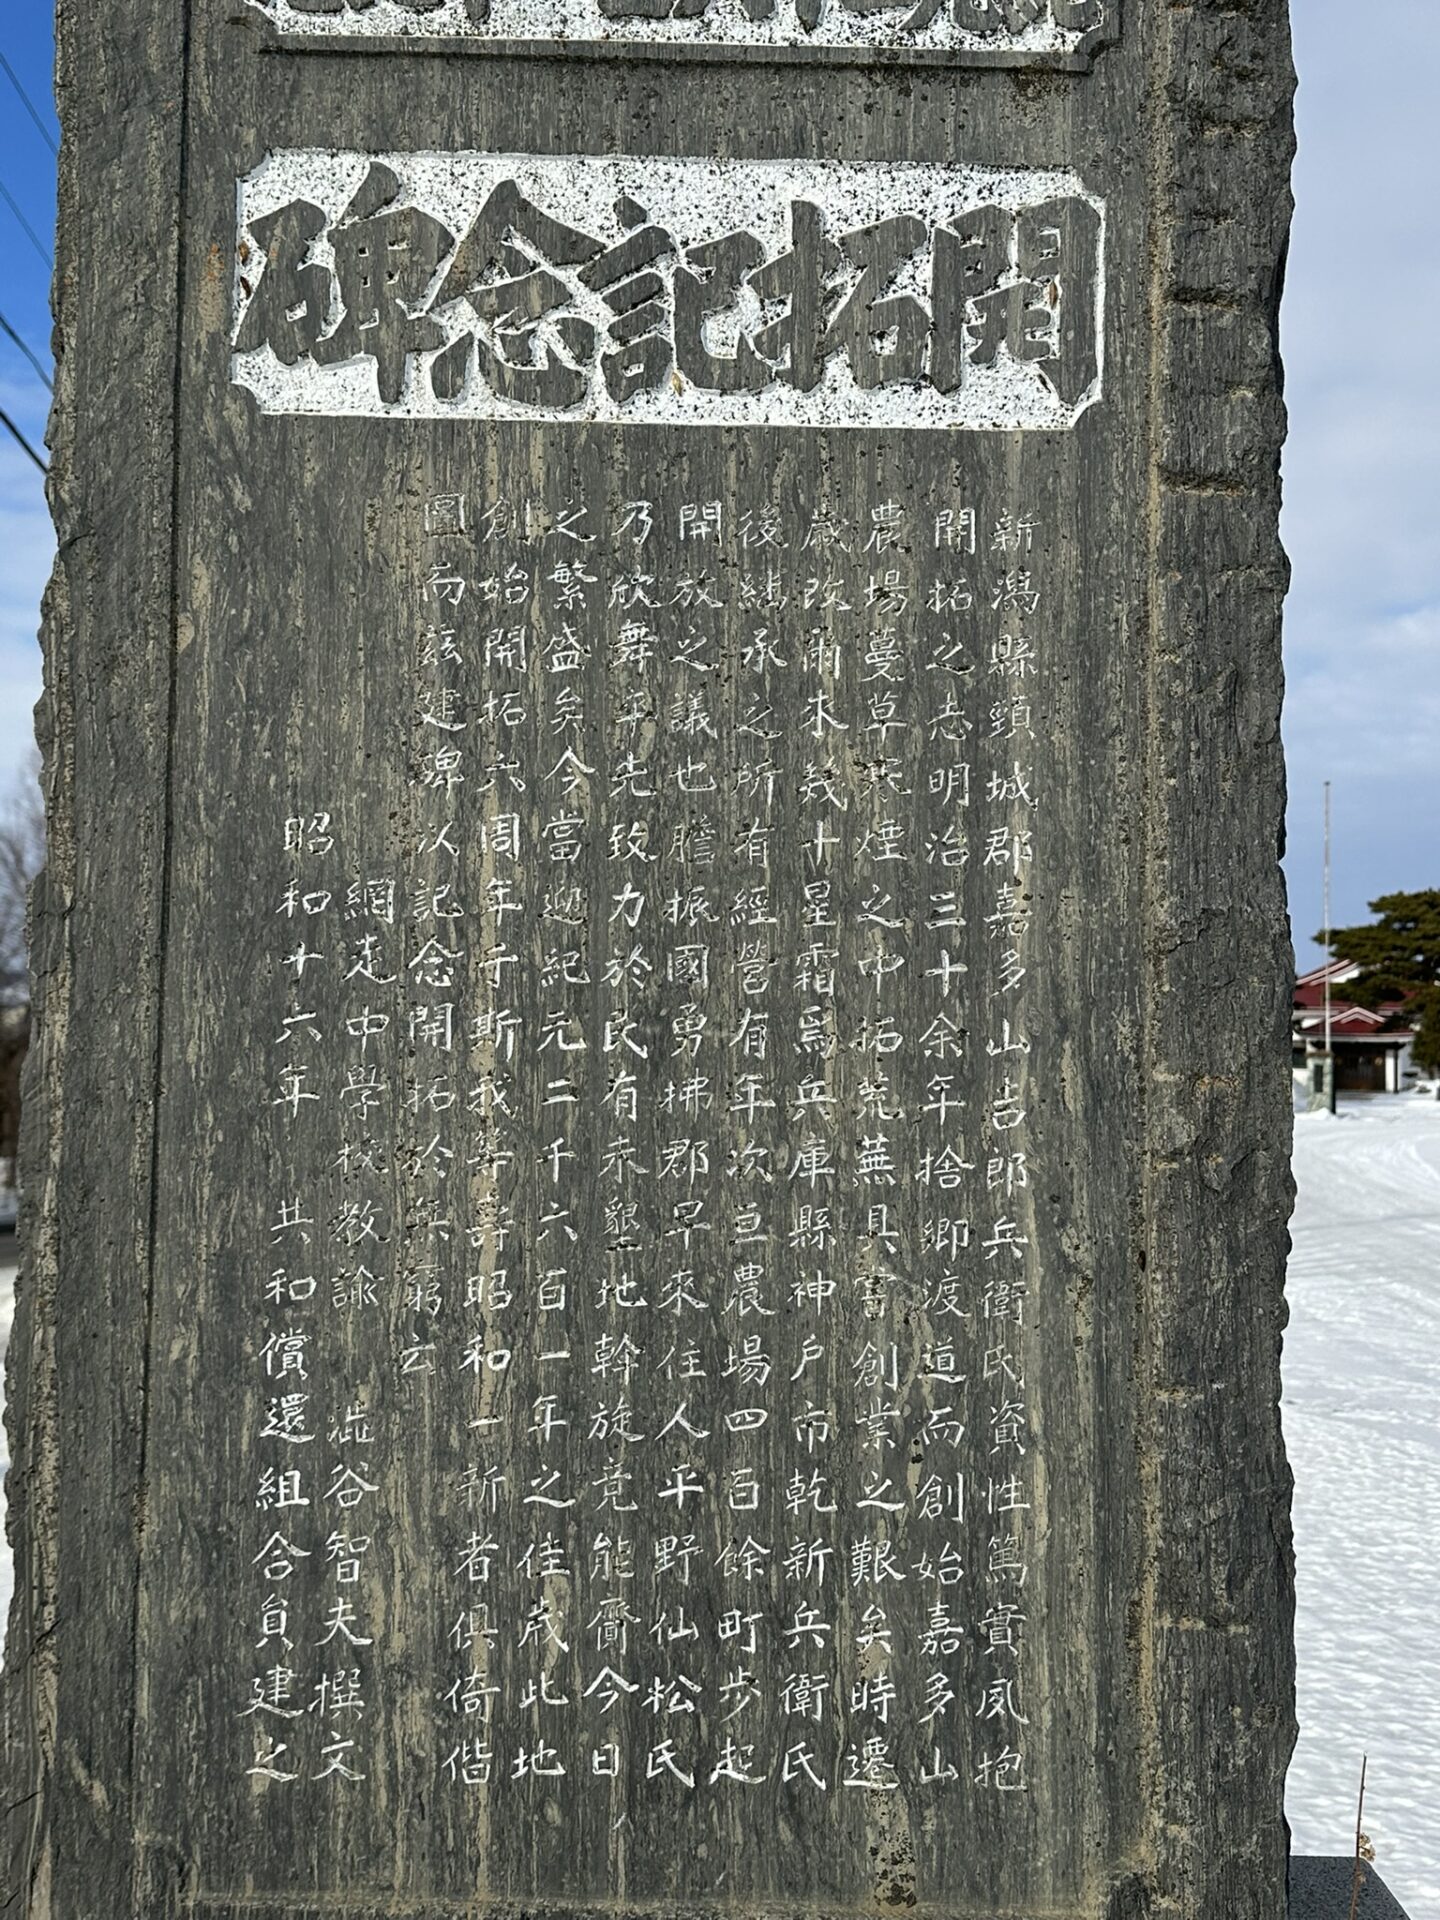 開拓記念碑
新潟縣頸城郡嘉多山吉郎兵衛氏資性篤實夙抱
開拓之志明治三十余年捨鄉渡道而創始嘉多山
農場蔓草寒煙之中拓荒蕪具嘗創業之艱矣時遷
歳改爾来幾十星霜爲兵庫縣神戶市乾新兵衛氏
後繼承之所有經營有年次亘農場四百餘町步起
開放之議也膽振國勇拂郡早來住人平野仙松氏
乃欣舞平先致力於民有未墾地斡旋竟能齎今日
之繁盛矣今當迎紀元二千六百一年之佳歳此地
創始開拓六周年于斯我等壽昭和一新者俱倚偕
圖而茲建碑以記念開拓於無窮云
網走中學校教諭 澁谷智夫撰文
昭和十六年 共和償還組合員建之